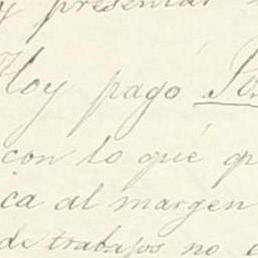 y presentar
Hoy pago
con lo qué
ca al margen
de trabajos no